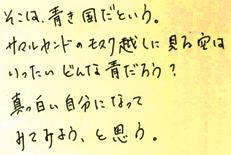 そこは、青き国だという。
サマルカンドのモスク越しに見る空は
いったいどんな青だろう？
真っ白い自分になって
みてみよう、と思う。